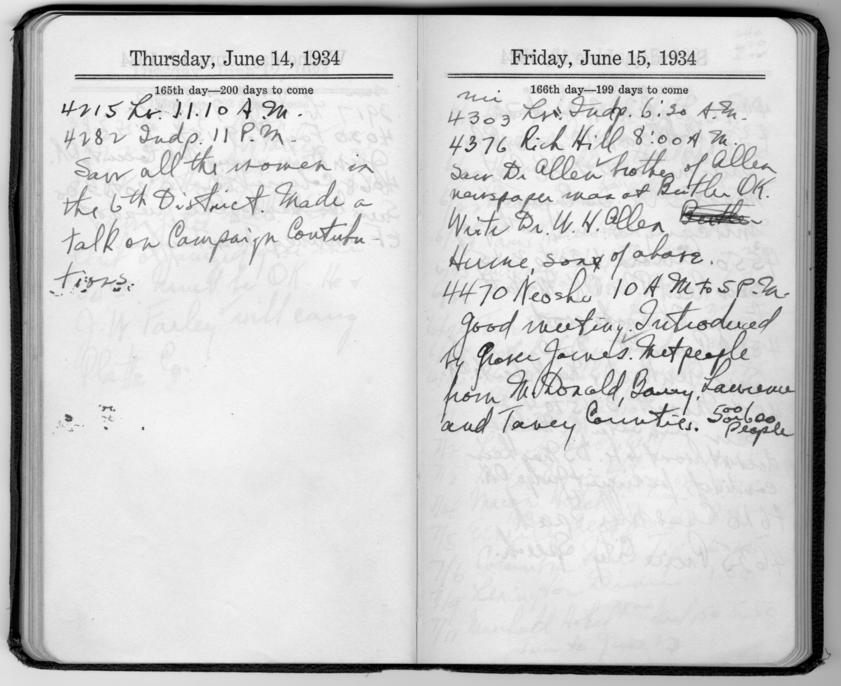 Thursday, June 14, 1934
165th day—200 days to come
4215 Lv. 11.10 A.M.
4282 Indp. 11 P.M.
Saw all the women in
the 6th District. Made a
talk on Campaign Contribu-
tions.
Friday, June 15, 1934
166th day—199 days to come
mi
4303 Lv. Indp. 6:30 A.M.
4376 Rich Hill 8:00 A.M.
Saw Dr Allen brother of Allen
newspaper man at Butler OK.
Write Dr. W. H. Allen
Hume, son of above.
4470 Neosho 10 A.M to 5 P.M.
Good meeting. Introduced
by Grover James. Met people
from McDonald, Barry, Lawrence
and Taney Counties. 500 or 600
People